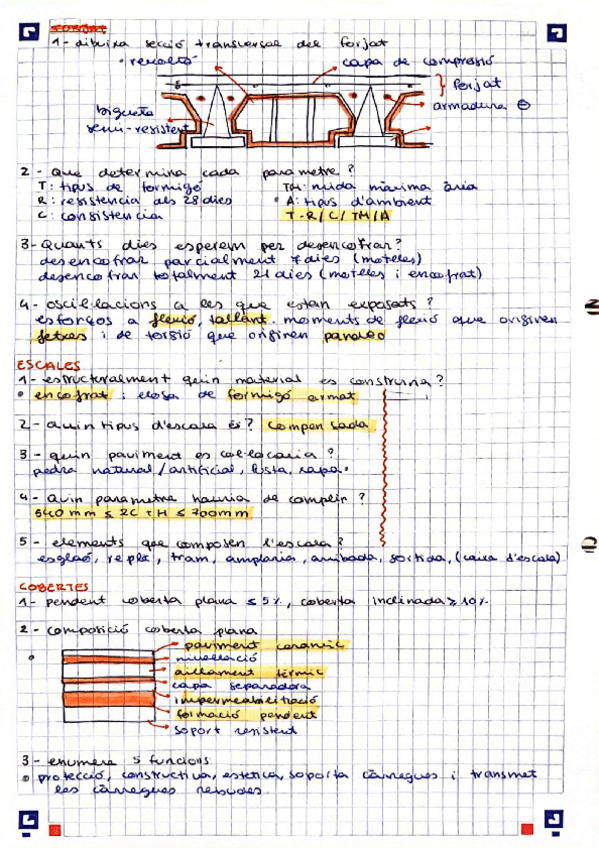 FORJAT
1 - dibuixa secció transversal del forjat
revoltó
capa de compressió
forjat
armadura ⊖
bigueta
semi-resistent
2 - Que determina cada parametre?
T: tipus de formigó
TM: mida màxima àrid
R: resistencia als 28 dies
A: tipus d'ambient
C: consistencia
T-R/C/TM/A
3 - Quants dies esperem per desencofrar?
desencofrar parcialment 7 dies (moteles)
desencofrar totalment 21 dies (moteles i encofrat)
4 - oscil·lacions a les que estan exposats?
esforços a flexió, tallant. moments de flexió que originen
fetxes i de torsió que originen
ESCALES
1 - estructuralment quin material es construiria?
encofrat i llosa de formigó armat
2 - Quin tipus d'escala és? compensada
3 - quin paviment es col·locaria?
pedra natural/artificial, fusta, rapa.
4 - Quin parametre hauria de complir?
540 mm ≤ 2C + H ≤ 700 mm
5 - elements que composen l'escala?
esglaó, replà, tram, amplaria, arribada, sortida, (caixa d'escala)
COBERTES
1 - pendent coberta plana ≤ 5%, coberta inclinada ≥ 10%
2 - composició coberta plana
paviment ceramic
nivellació
aillament tèrmic
capa separadora
impermeabilització
formació pendent
soport resistent
3 - enumera 5 funcions
protecció, constructiva, estetica, soporta càrregues i transmet
les càrregues rebudes.